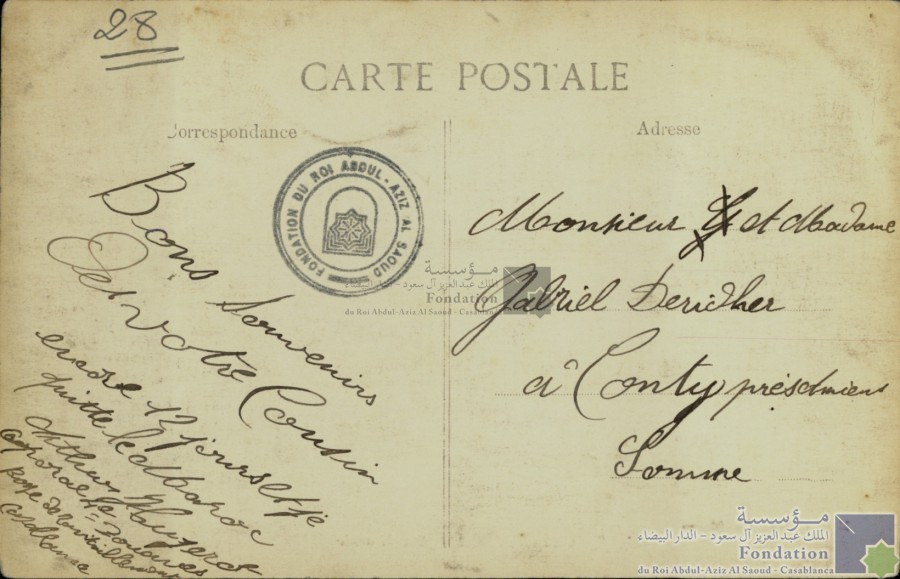 28
CARTE POSTALE
Correspondance
Adresse
Bons Souvenirs
De votre Cousin
encore 12 jours et je
quitte le Maroc
Arthur
Caporal 4e Zouaves
Monsieur et Madame
Gabriel Deridher
à Conty près Amiens
Somme
FONDATION DU ROI ABDUL-AZIZ AL SAOUD
مؤسسة
الملك عبد العزيز آل سعود - الدار البيضاء
Fondation
du Roi Abdul-Aziz Al Saoud - Casablanca
مؤسسة
الملك عبد العزيز آل سعود - الدار البيضاء
Fondation
du Roi Abdul-Aziz Al Saoud - Casablanca